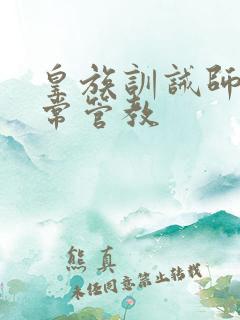 皇族訓誡師
常管教
熊真
未经同意禁止转载